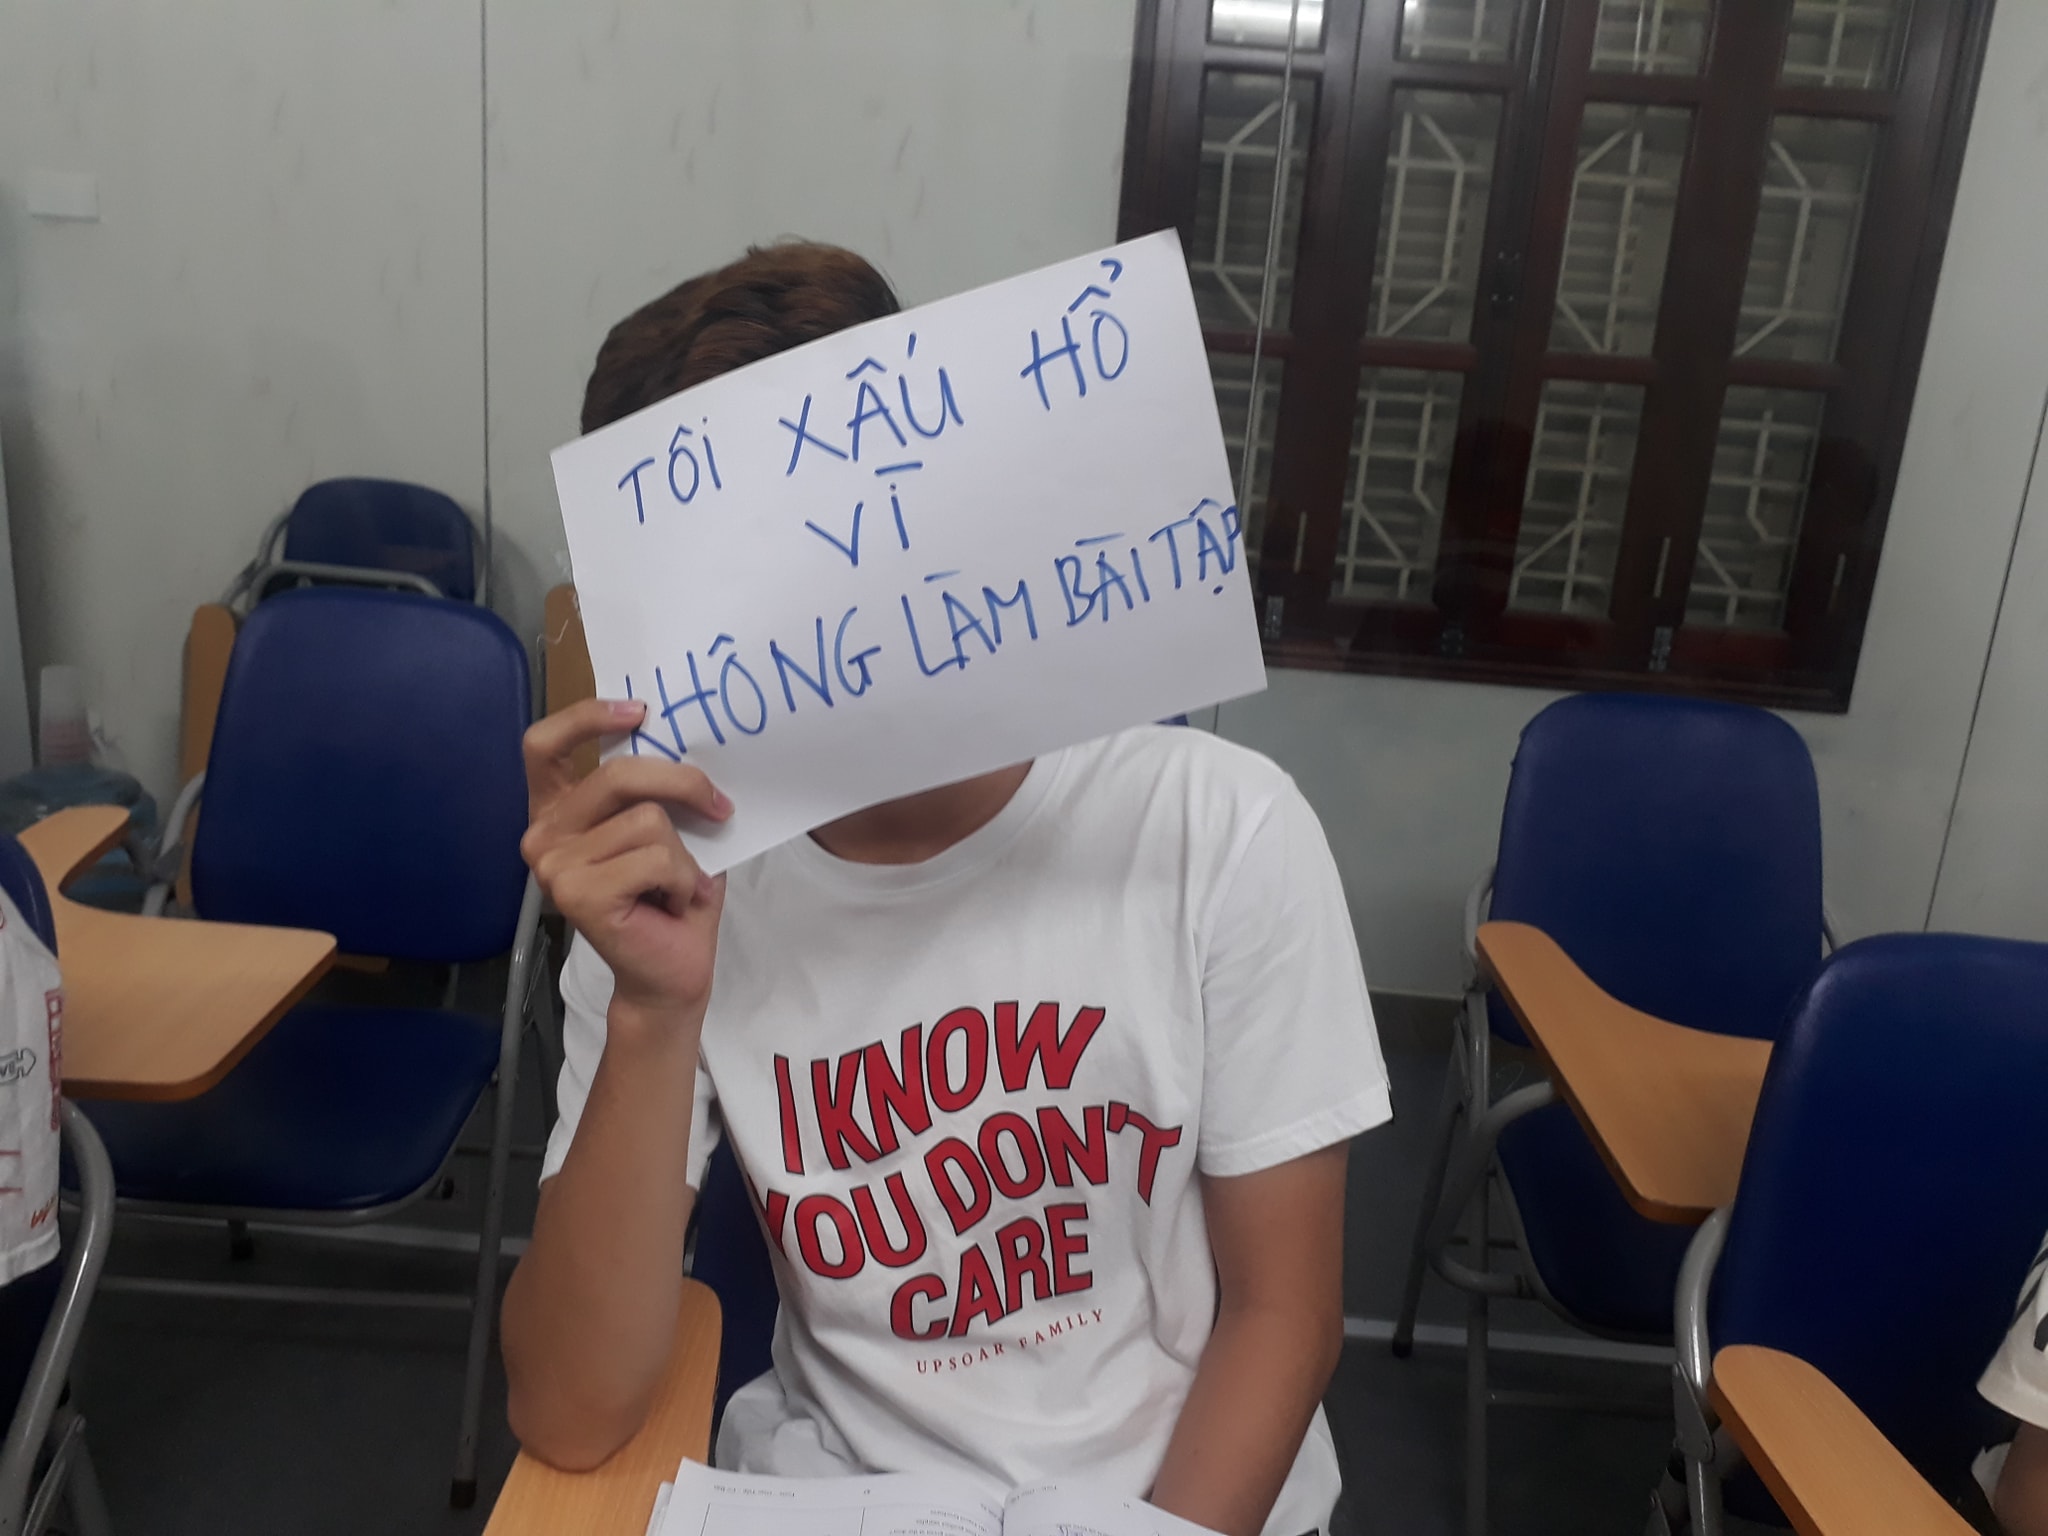 TÔI XẤU HỔ
VÌ
KHÔNG LÀM BÀI TẬP
I KNOW
YOU DON'T
CARE
UPSOAR FAMILY